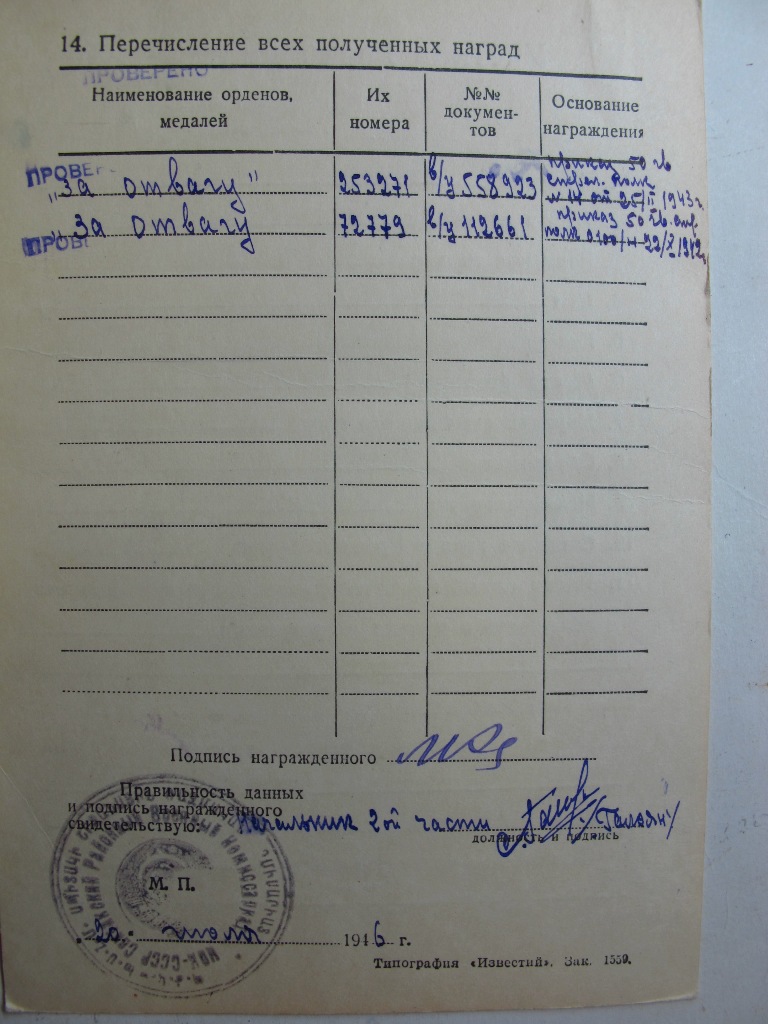 14. Перечисление всех полученных наград
ПРОВЕРЕНО
Наименование орденов, медалей
Их номера
№№ докумен-тов
Основание награждения
ПРОВЕР
„За отвагу" 253271 в/у 558923 приказ 50 гв стрел. полк
№ 14 от 25/II 1943 г.
„За отвагу 72779 в/у 112661 приказ 50 гв. стр.
полк 0100/н 22/X 1942г.
ПРОВЕ
Подпись награжденного
Правильность данных
и подпись награжденного
свидетельствую: Начальник 2ой части
должность и подпись
М. П.
20 июля 1946 г.
Типография «Известий». Зак. 1559.